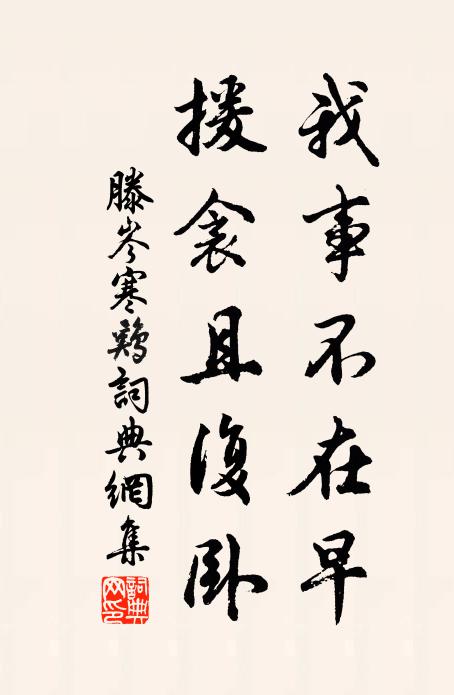 我事不在早
援衾且復卧
滕岑寒鷄詞典網集
詞典網印